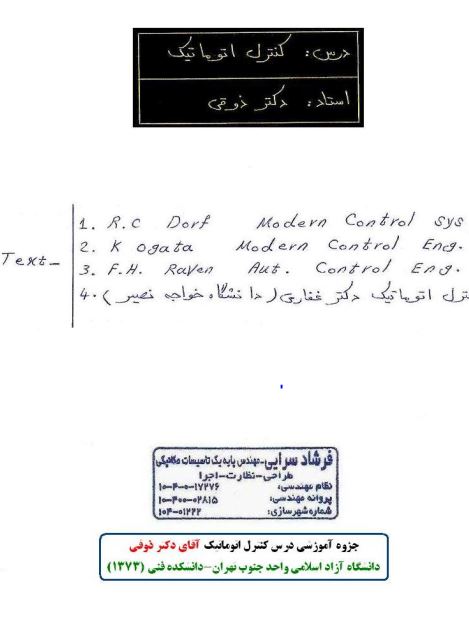 درس: کنترل اتوماتیک
استاد: دکتر ذوقی
Text-
1. R.C Dorf Modern Control sys
2. K Ogata Modern Control Eng.
3. F.H. Raven Aut. Control Eng.
4. کنترل اتوماتیک دکتر غفاری (دانشگاه خواجه نصیر)
فرشاد سرایی-مهندس پایه یک تاسیسات مکانیکی
طراحی-نظارت-اجرا
نظام مهندسی: ۱۰-۴-۰-۱۷۲۷۶
پروانه مهندسی: ۱۰-۴۰۰-۰۲۸۱۵
شماره شهرسازی: ۱۰۴-۰۱۲۲۲
جزوه آموزشی درس کنترل اتوماتیک آقای دکتر ذوقی
دانشگاه آزاد اسلامی واحد جنوب تهران-دانشکده فنی (۱۳۷۳)